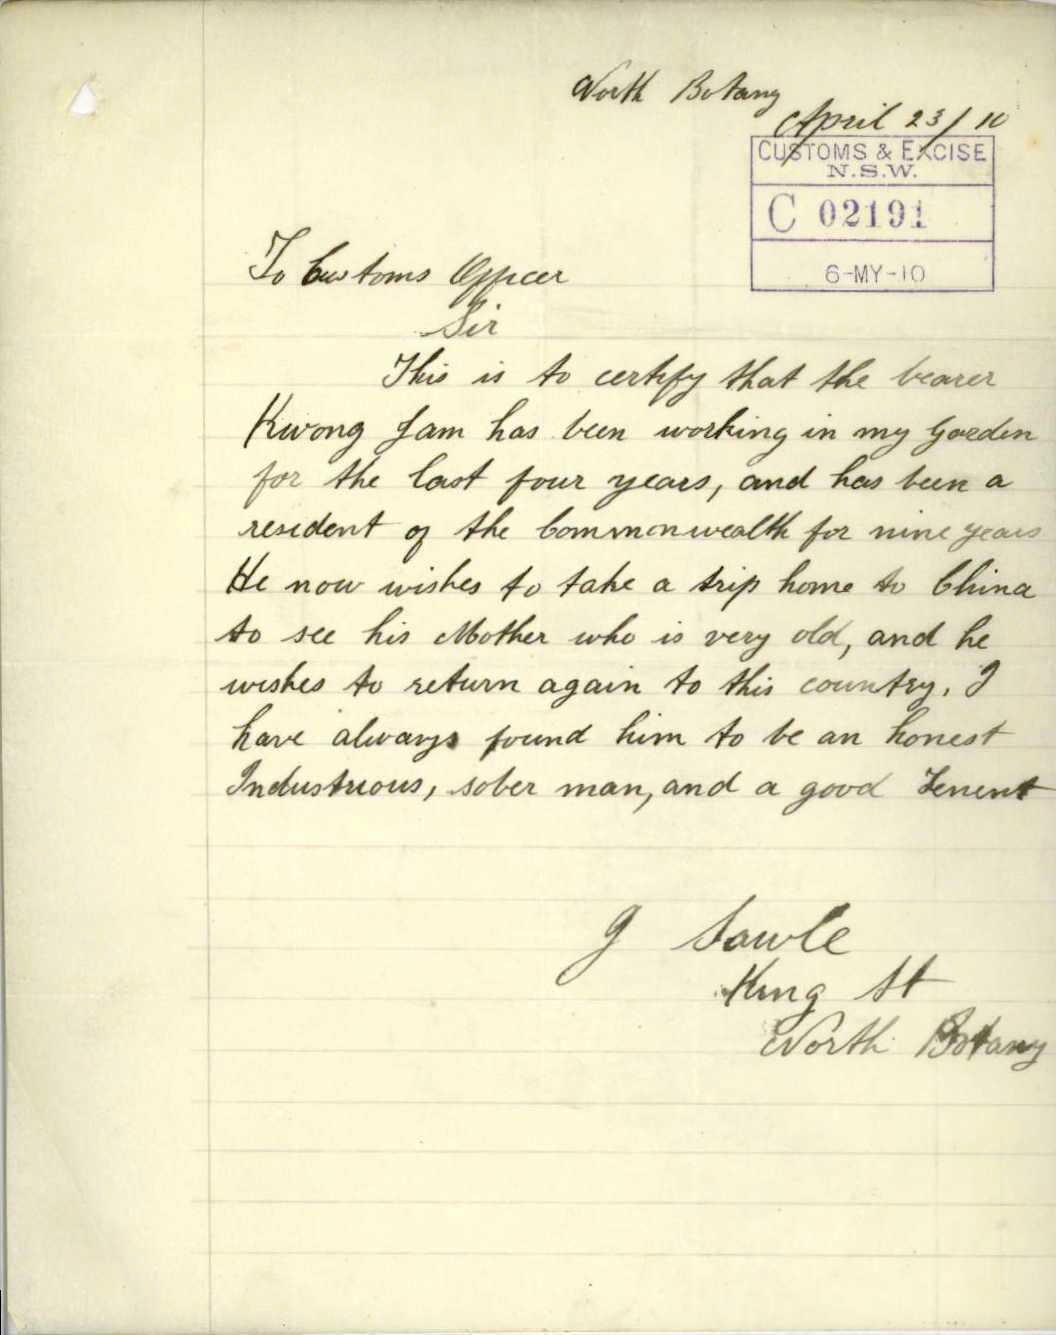 North Botany
April 23/10
CUSTOMS & EXCISE
N.S.W.
C 02191
6-MY-10
To Customs Officer
Sir
This is to certify that the bearer
Kwong Jam has been working in my Garden
for the last four years, and has been a
resident of the Commonwealth for nine years
He now wishes to take a trip home to China
to see his Mother who is very old, and he
wishes to return again to this country. I
have always found him to be an honest
Industruous, sober man, and a good Tenent
J Sawle
King St
North Botany